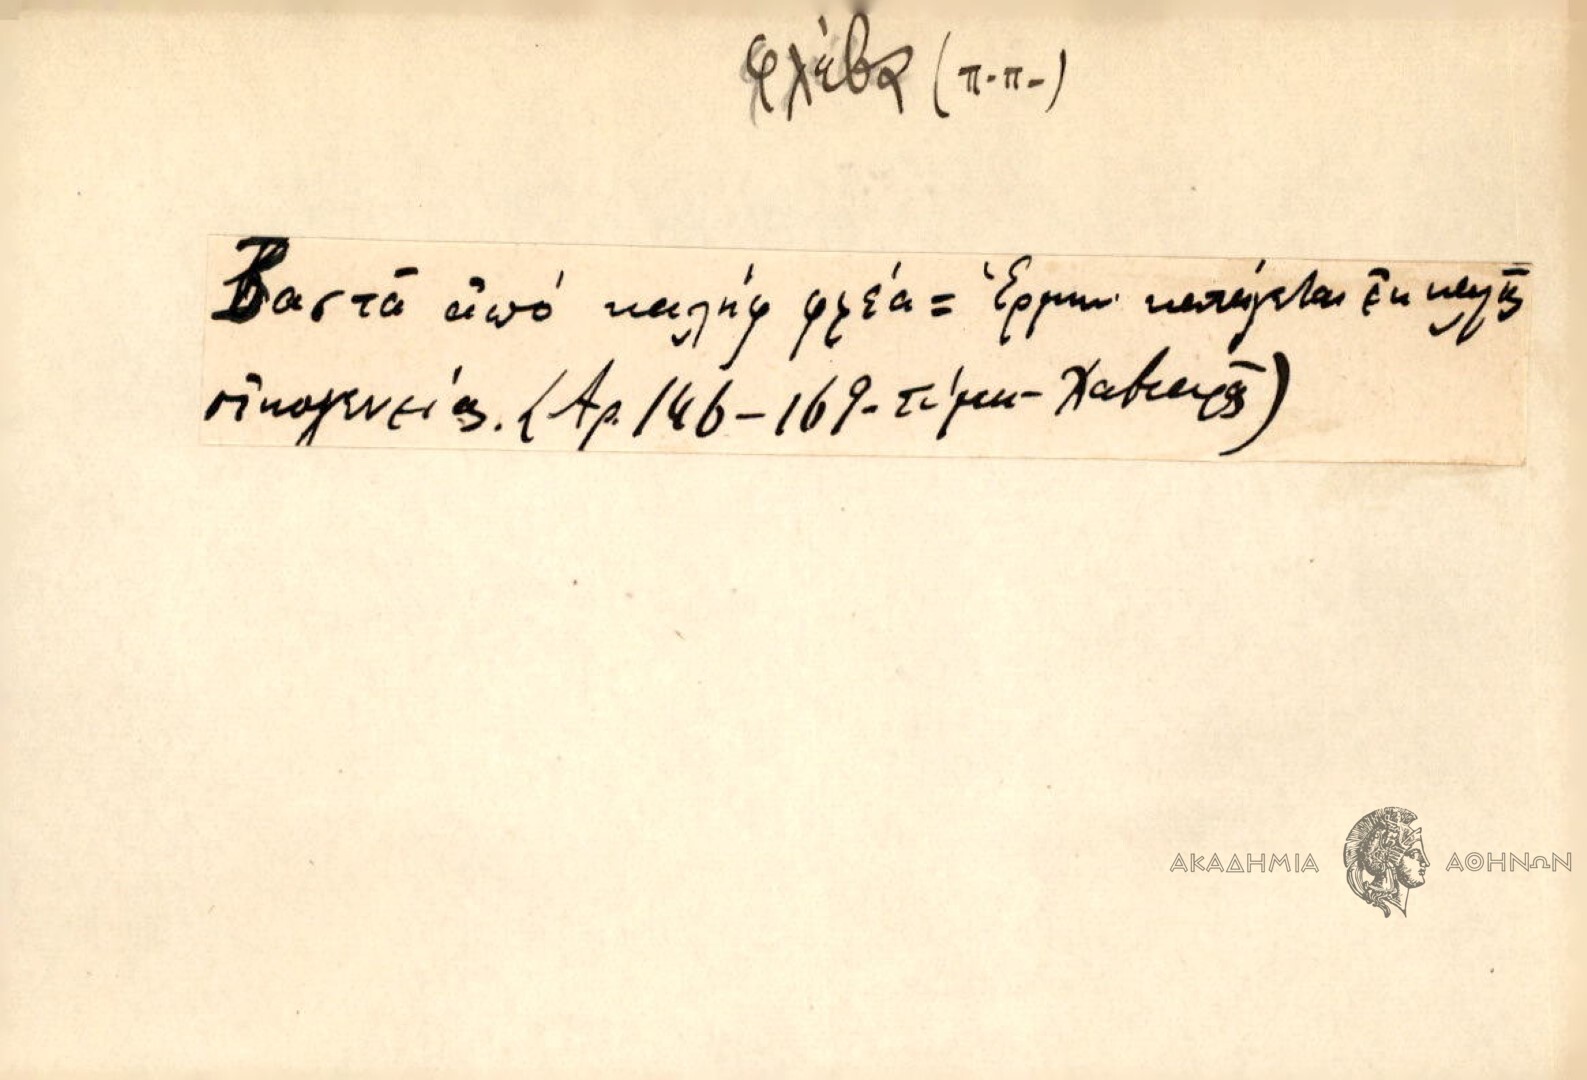 φλέβα (π.π.)
Βαστᾶ ἀπό καλήφ φλέα = Ἑρμην. κατάγεται ἐκ καλῆς
οἰκογενείας. (Ἀρ. 146-169.
ΑΚΑΔΗΜΙΑ ΑΘΗΝΩΝ